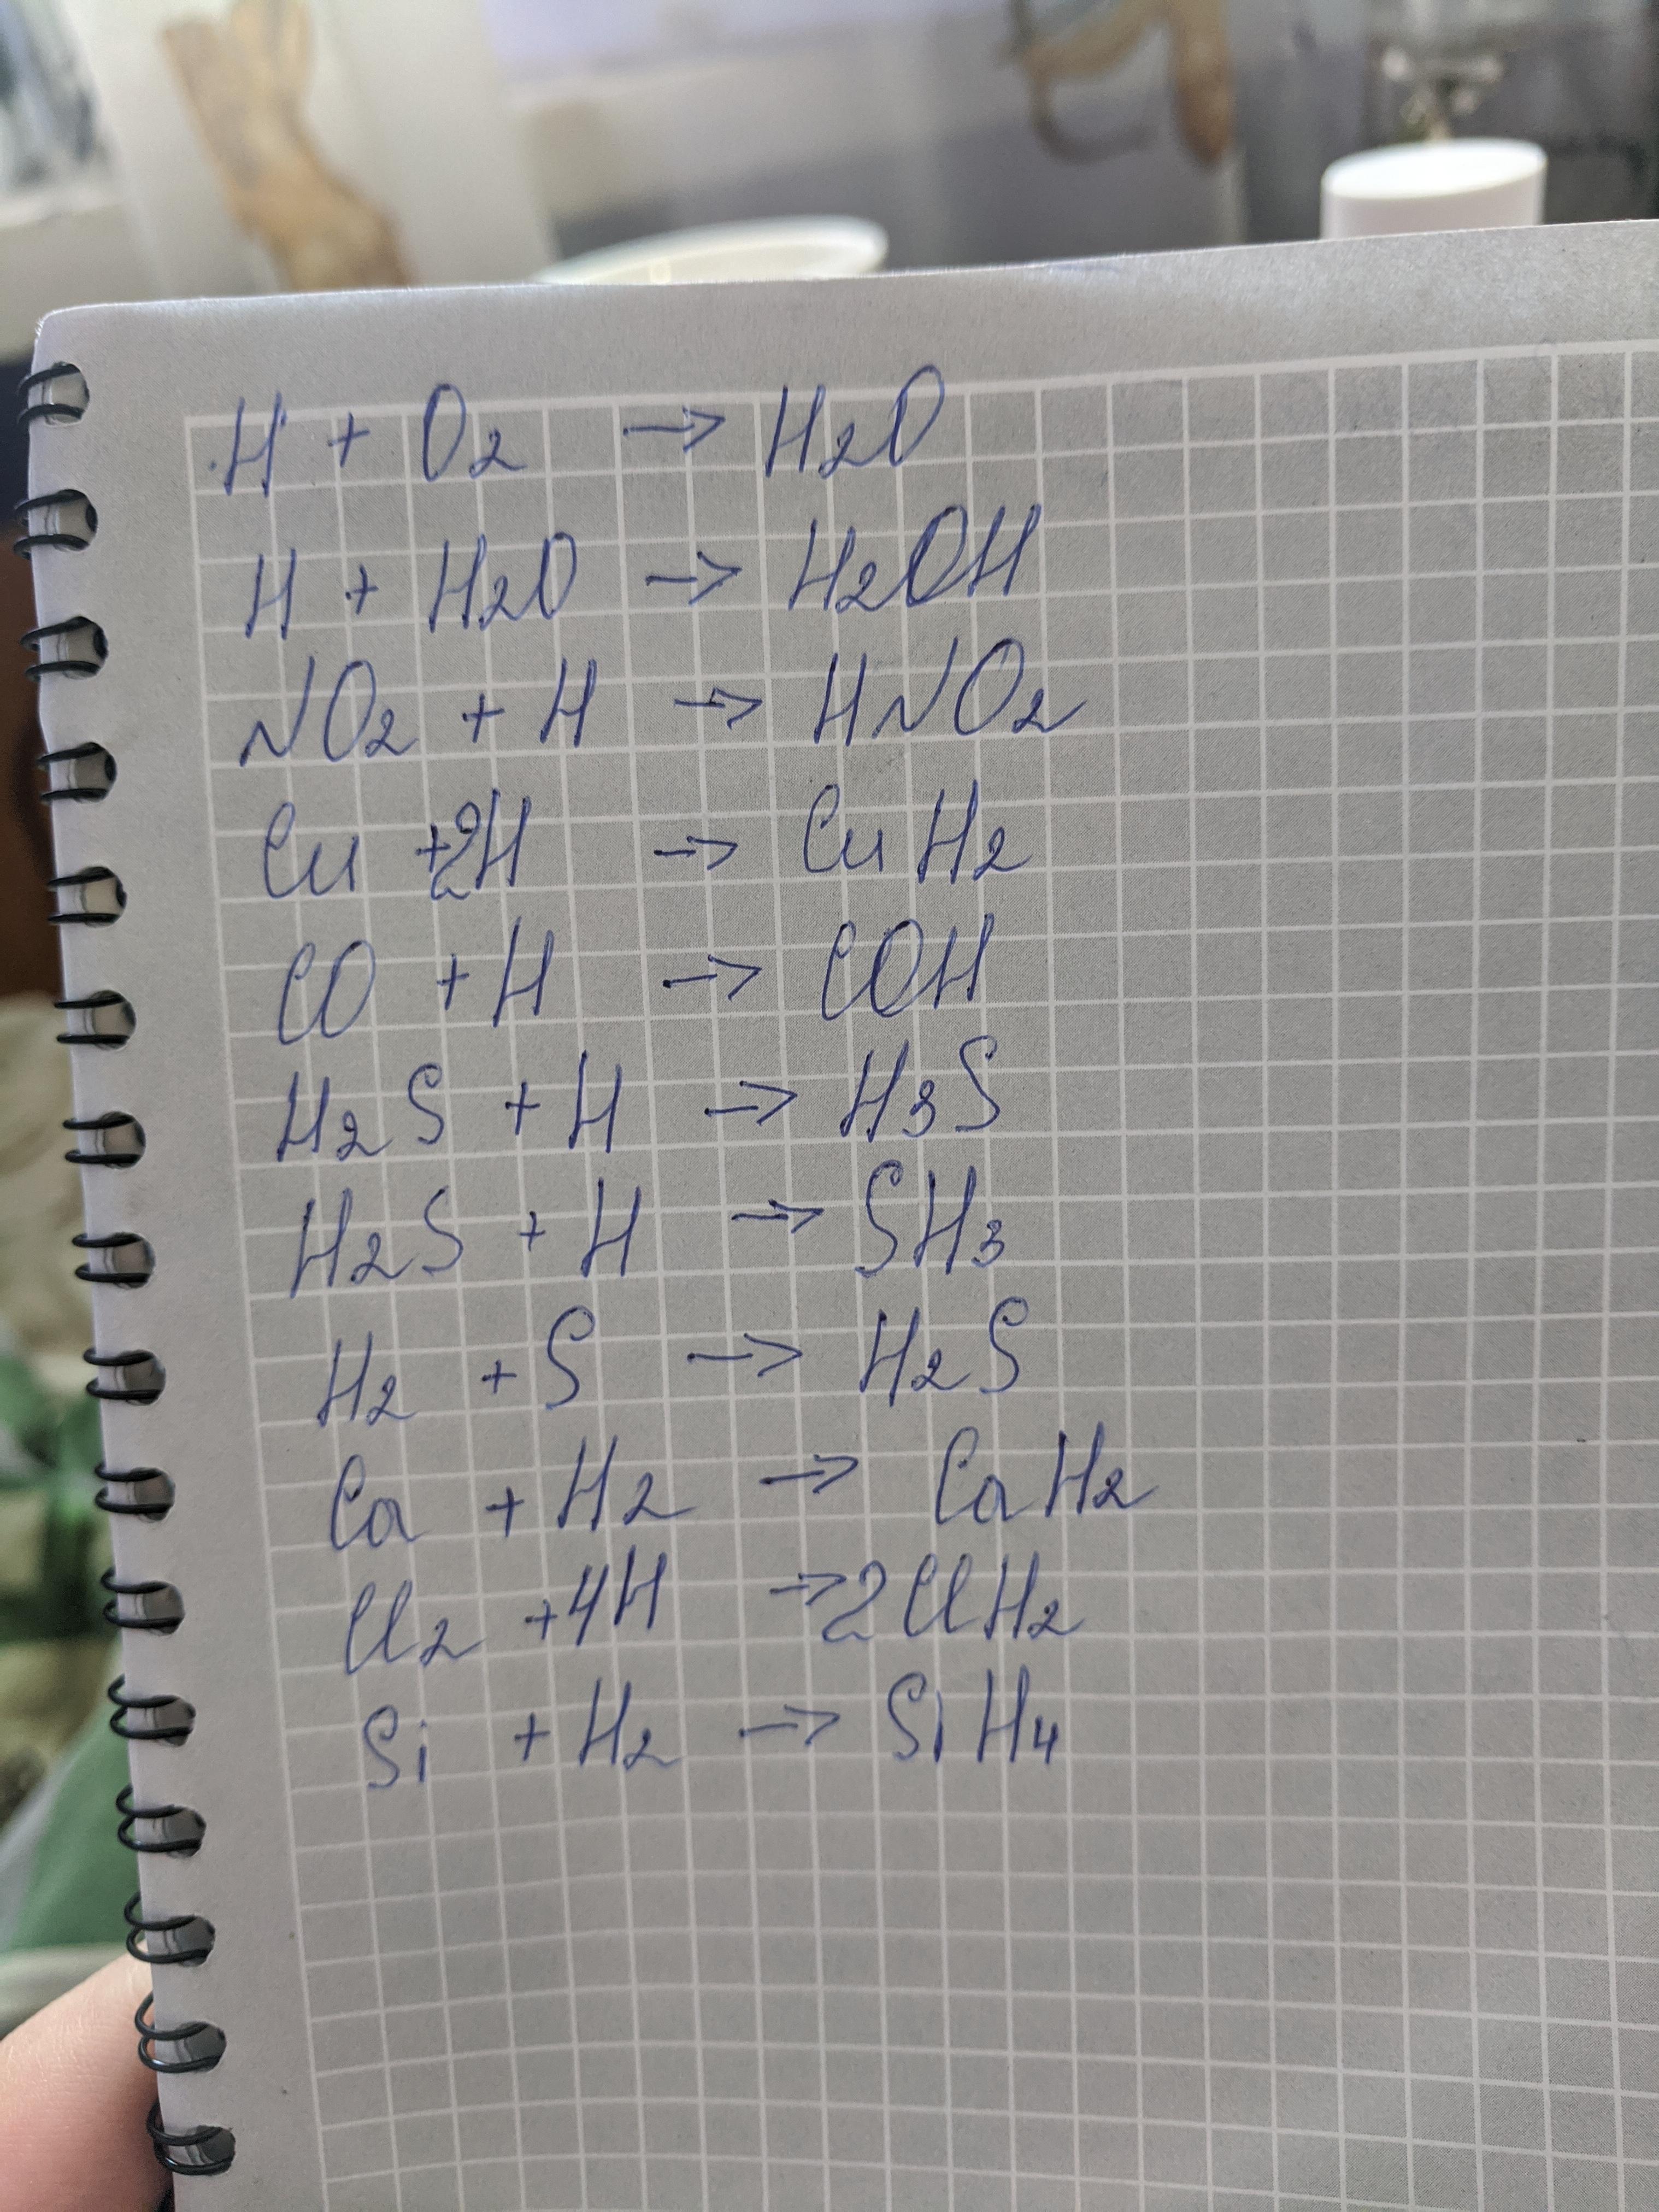 H + O2 → H2O
H + H2O → H2OH
NO2 + H → HNO2
Cu +2H → CuH2
CO + H → COH
H2S + H → H3S
H2S + H → SH3
H2 + S → H2S
Ca + H2 → CaH2
Cl2 +4H →2ClH2
Si + H2 → SiH4